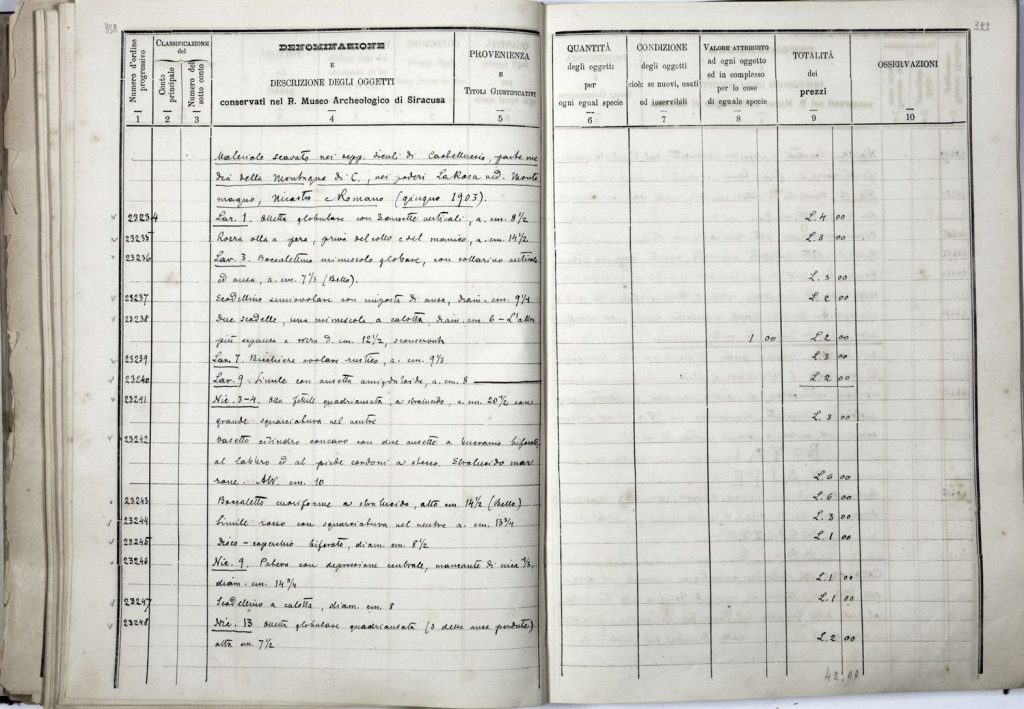 398
399
Numero d'ordine progressivo
CLASSIFICAZIONE
del
Conto principale
Numero del sotto conto
DENOMINAZIONE
E
DESCRIZIONE DEGLI OGGETTI
conservati nel R. Museo Archeologico di Siracusa
PROVENIENZA
E
TITOLI GIUSTIFICATIVI
QUANTITÀ
degli oggetti
per
ogni egual specie
CONDIZIONE
degli oggetti
cioè: se nuovi, usati
od inservibili
VALORE ATTRIBUITO
ad ogni oggetto
ed in complesso
per le cose
di eguale specie
TOTALITÀ
dei
prezzi
OSSERVAZIONI
1 2 3 4 5 6 7 8 9 10
Materiale scavato nei sepp. siculi di Castelluccio, parte me
dia della Montagna di C., nei poderi La Rosa
Nicastro e Romano (giugno 1903).
23234 Lar. 1. Olletta globulare con ansette verticali, a. cm. 8 1/2 L. 4 00
23235 Rozza olla a pera, priva del collo e del manico, a. cm. 14 1/2 L. 3 00
23236 Lav. 3. Boccalettino minuscolo globare, con collarino verticale
ed ansa, a. cm. 7 1/3 (Bello). L. 3 00
23237 Scodellino semiovolare con imposta di ansa, diam. cm. 9 1/4 L. 2 00
23238 Due scodelle, una minuscola a calotta, diam. cm 6 - L'altra
più espansa e rozza d. cm. 12 1/2, sconservata 1 00 L. 2 00
23239 Lar. 7. Bicchiere ovolare rustico, a. cm. 9 1/3 L. 3 00
23240 Lav. 9. Simile con ansetta amigdaloide, a. cm. 8 L. 2 00
23241 Nic. 3-4. Olla fittile quadriansata, a stralucido, a. cm. 20 1/2 con
grande squarciatura nel ventre L. 3 00
23242 Vasetto cilindro concavo con due ansette a
al labbro ed al piede cordoni a stecco. Stralucido mar
rone. Alt. cm. 10 L. 6 00
23243 Boccaletto cuoriforme a stralucido, alto cm. 14 1/2 (Bello) L. 6 00
23244 Simile rosso con squarciatura nel ventre a. cm. 13 3/4 L. 3 00
23245 Disco-coperchio biforato, diam. cm. 8 1/2 L. 1 00
23246 Nic. 9. Patera con depressione centrale, mancante di circa 1/3,
diam. cm. 14 3/4 L. 1 00
23247 Scodellino a calotta, diam. cm. 8 L. 1 00
23248 Nic. 13 Olletta globulare quadriansata (3 delle anse perdute)
alta cm. 7 1/2 L. 2 00
42.00